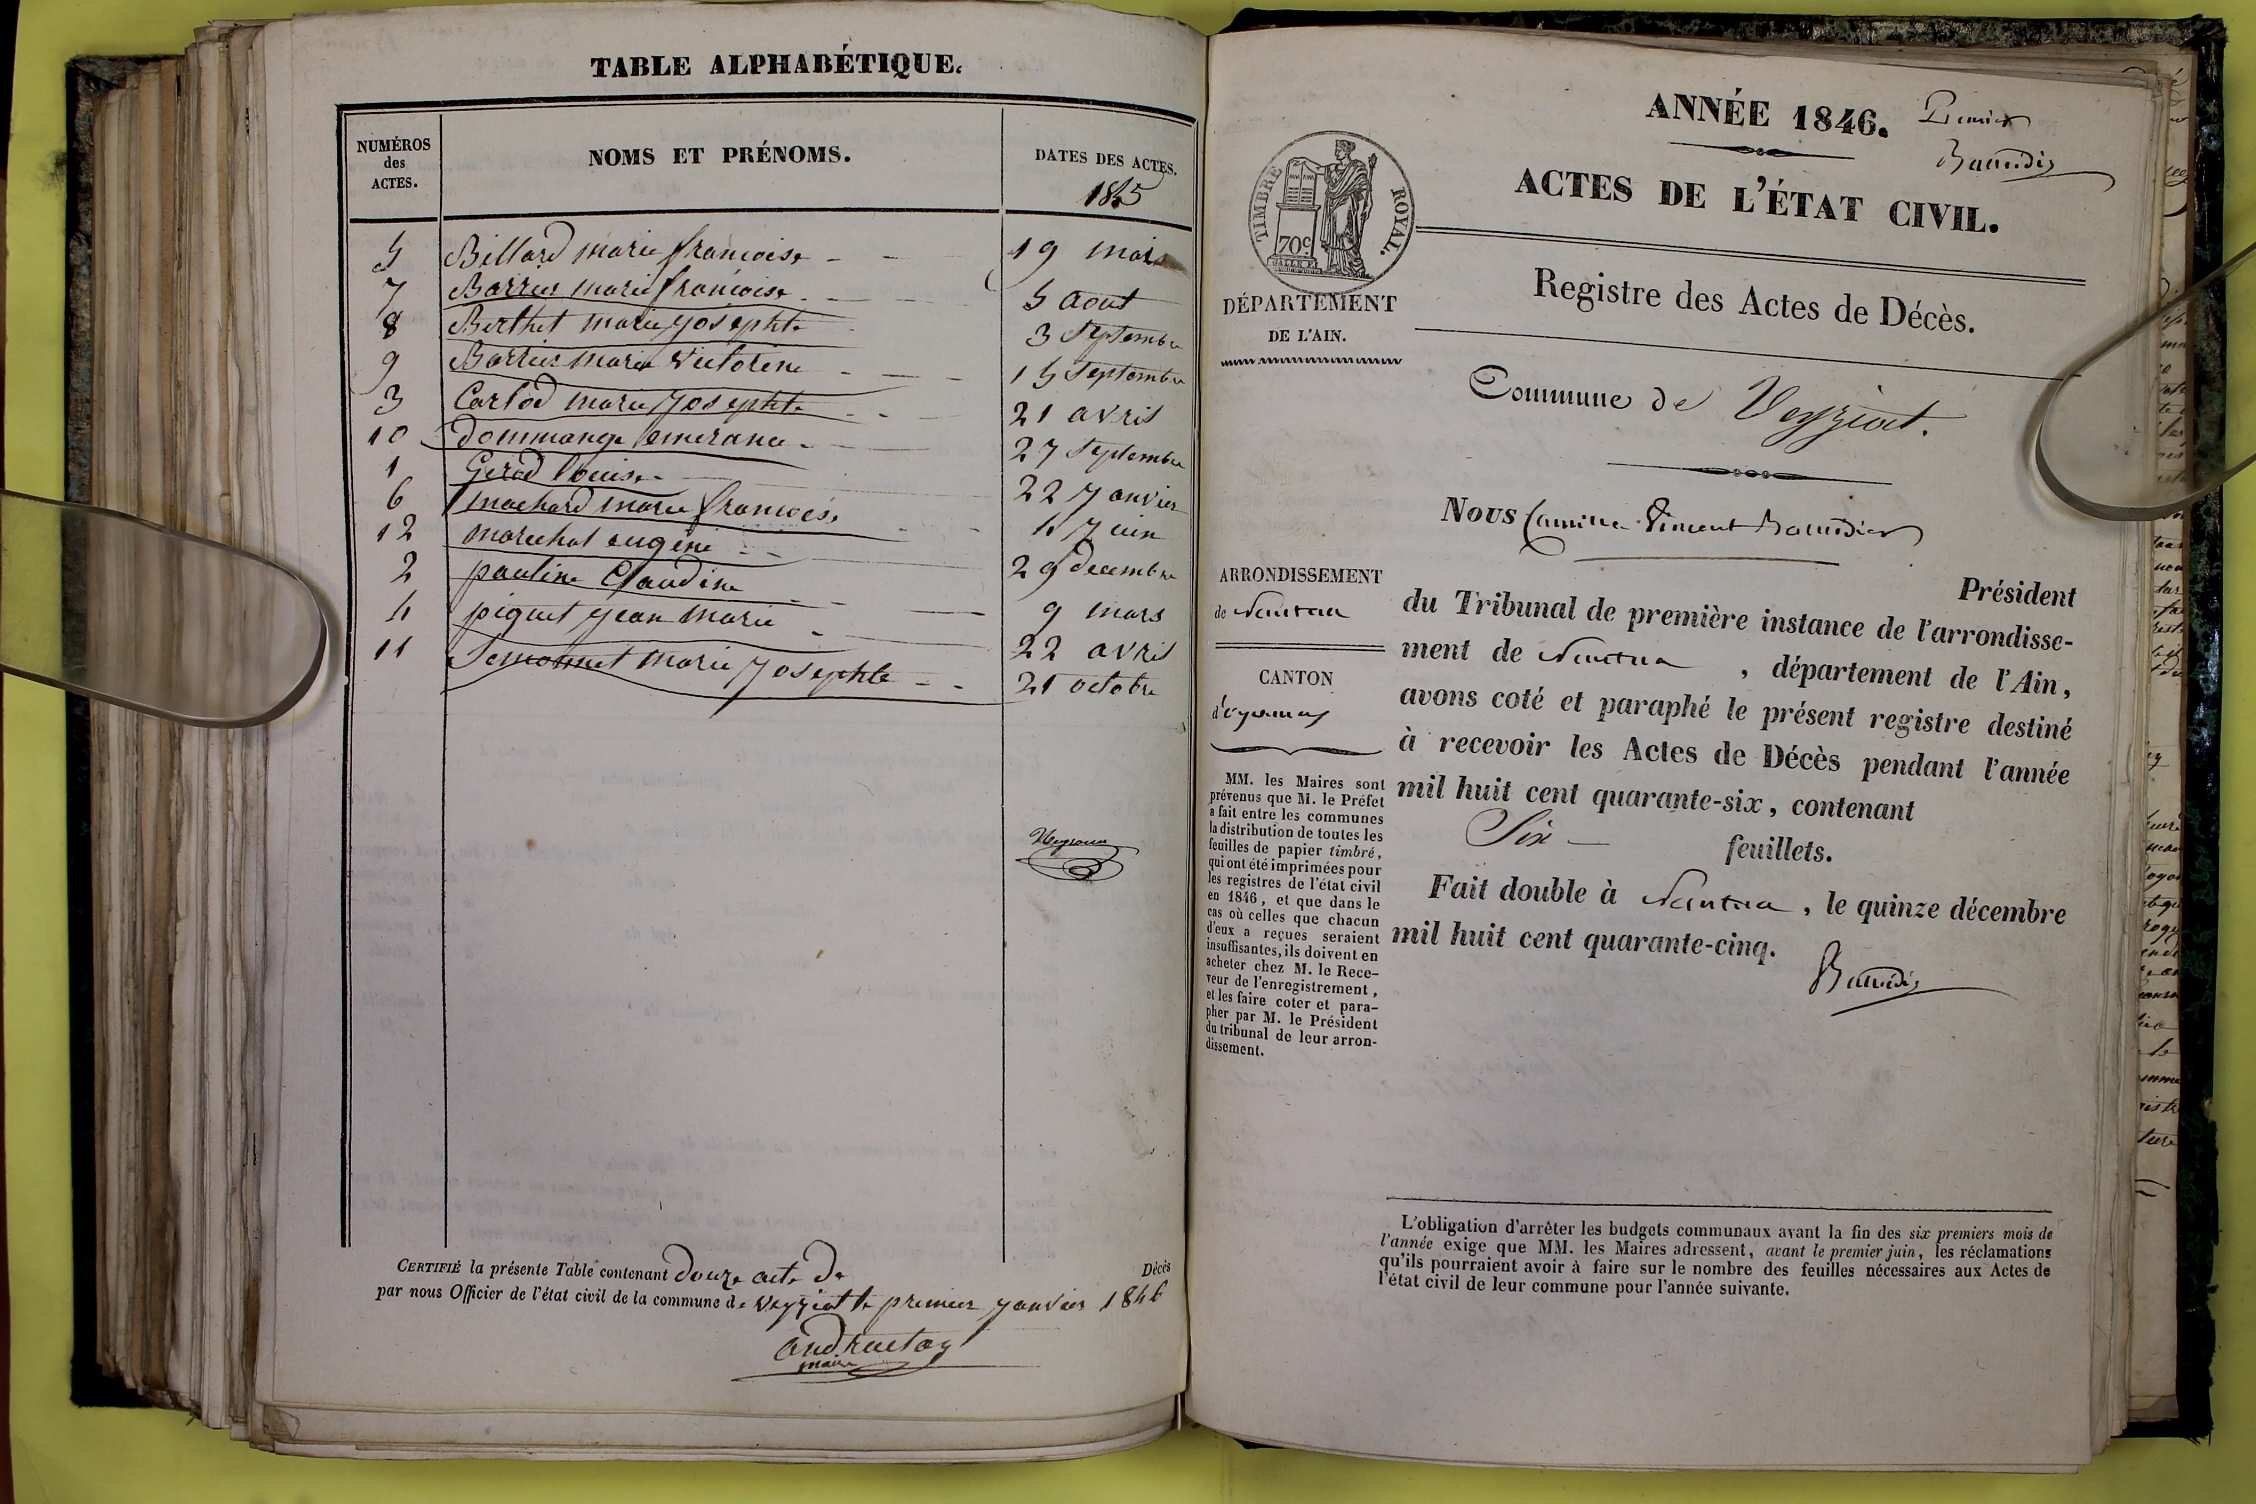 TABLE ALPHABÉTIQUE.
NUMÉROS des ACTES.
NOMS ET PRÉNOMS.
DATES DES ACTES.
1845
5 Billard marie françoise 19 mai
7 Barrier marie françoise 5 aout
8 Berthet marie josephte 3 septembre
9 Barrier marie victorine 15 septembre
3 Carlod marie josephte 21 avril
10 dommange emerance 27 septembre
1 Gerod louise 22 janvier
6 machard marie françoise 4 juin
12 marechal eugéni 29 decembre
2 pauline Claudine 9 mars
4 piquet jean marie 22 avril
11 marie josephte 21 octobre
CERTIFIÉ la présente Table contenant douze acte de Décès
par nous Officier de l'état civil de la commune de veyziat le premier janvier 1846
maire
ANNÉE 1846.
Premier
ACTES DE L'ÉTAT CIVIL.
TIMBRE ROYAL.
70c
Registre des Actes de Décès.
DÉPARTEMENT
DE L'AIN.
Commune de Veyziat.
Nous Camille Vincent
Président
ARRONDISSEMENT
de Nantua
CANTON
d'oyonnax
du Tribunal de première instance de l'arrondisse-
ment de Nantua , département de l'Ain,
avons coté et paraphé le présent registre destiné
à recevoir les Actes de Décès pendant l'année
mil huit cent quarante-six, contenant
Six feuillets.
Fait double à Nantua , le quinze décembre
mil huit cent quarante-cinq.
MM. les Maires sont
prévenus que M. le Préfet
a fait entre les communes
la distribution de toutes les
feuilles de papier timbré,
qui ont été imprimées pour
les registres de l'état civil
en 1846, et que dans le
cas où celles que chacun
d'eux a reçues seraient
insuffisantes, ils doivent en
acheter chez M. le Rece-
veur de l'enregistrement,
et les faire coter et para-
pher par M. le Président
du tribunal de leur arron-
dissement.
L'obligation d'arrêter les budgets communaux avant la fin des six premiers mois de
l'année exige que MM. les Maires adressent, avant le premier juin, les réclamations
qu'ils pourraient avoir à faire sur le nombre des feuilles nécessaires aux Actes de
l'état civil de leur commune pour l'année suivante.